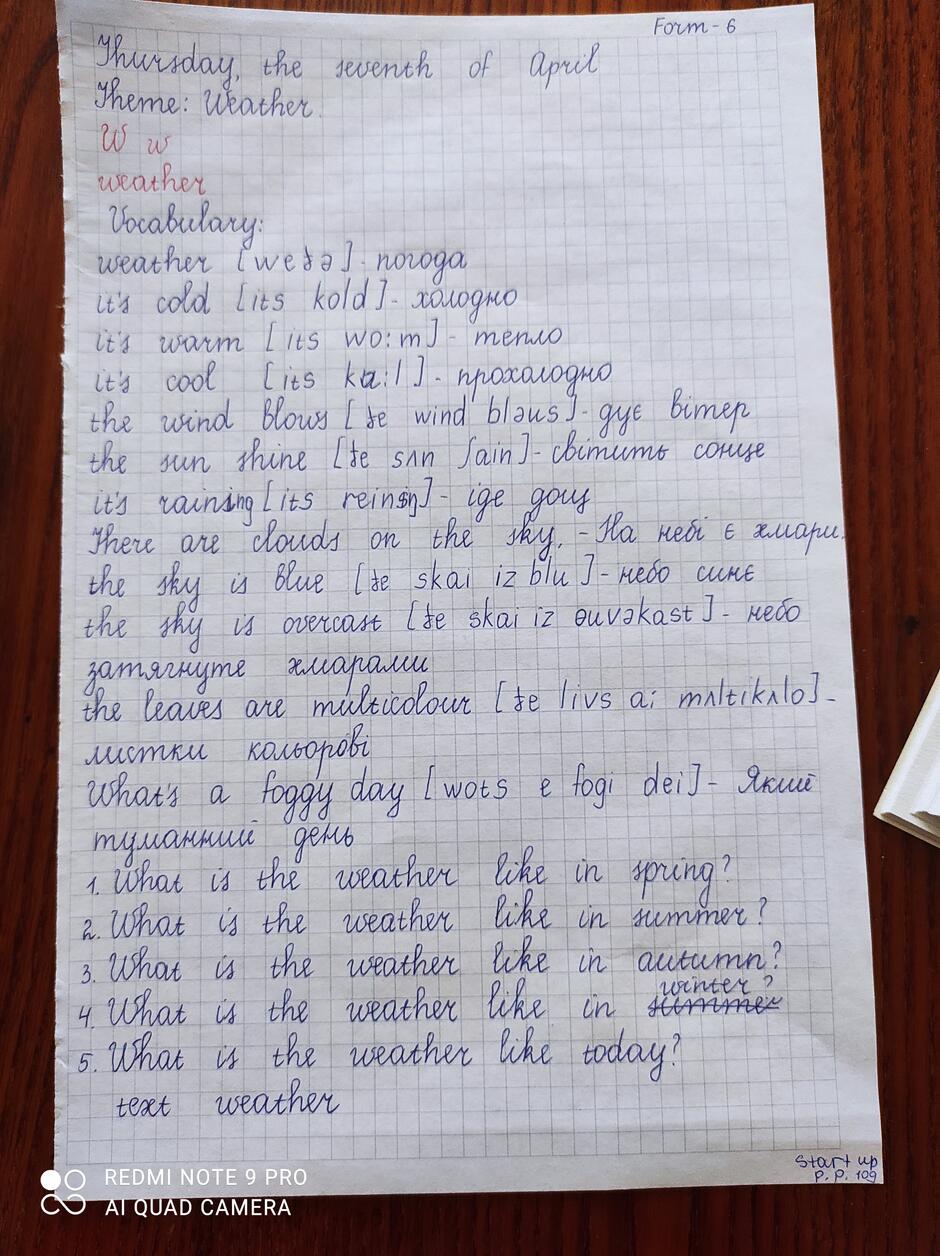 Form-6
Thursday, the seventh of April
Theme: Weather.
W w
weather
Vocabulary:
weather [weðə]- погода
it's cold [its kold]- холодно
it's warm [its wo:m]- тепло
it's cool [its ku:l]- прохолодно
the wind blows [ðe wind bləus]- дує вітер
the sun shine [ðe sʌn ʃain]- світить сонце
it's raining [its reiniŋ]- іде дощ
There are clouds on the sky. - На небі є хмари.
the sky is blue [ðe skai iz blu]- небо синє
the sky is overcast [ðe skai iz əuvəkast]- небо
затягнуте хмарами
the leaves are multicolour [ðe livs a: mʌltikʌlo]-
листки кольорові
What's a foggy day [wots e fogi dei]- Який
туманний день
1. What is the weather like in spring?
2. What is the weather like in summer?
3. What is the weather like in autumn?
4. What is the weather like in summer winter?
5. What is the weather like today?
text weather
Start up
p.p. 109
REDMI NOTE 9 PRO
AI QUAD CAMERA